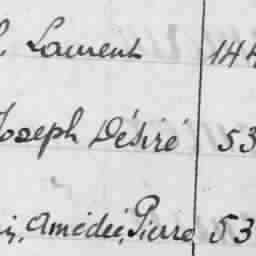 Laurent 144
Joseph Désiré 53
Amédée, Pierre 53